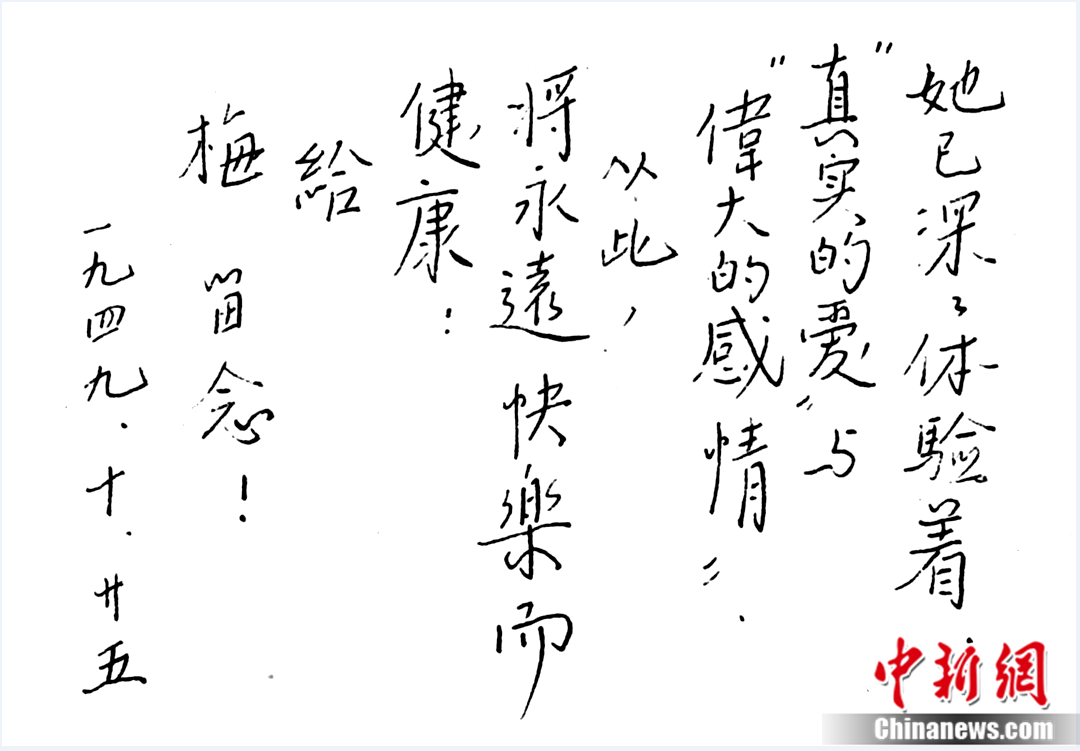 她已深〻体驗着
“真实的愛”与
“偉大的感情”.
以此，
将永遠快樂而
健康！
給
梅 留念！
一九四九.十.廿五
中新網
Chinanews.com